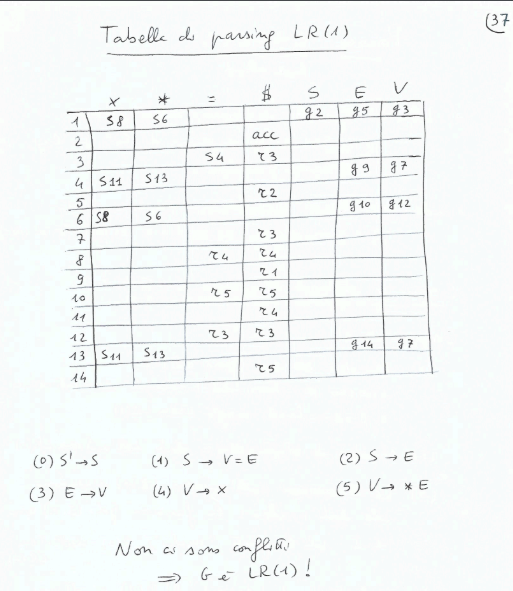 (37
Tabella di parsing LR(1)
x * = $ S E V
1 S8 S6 g2 g5 g3
2 acc
3 S4 r3
4 S11 S13 g9 g7
5 r2
6 S8 S6 g10 g12
7 r3
8 r4 r4
9 r1
10 r5 r5
11 r4
12 r3 r3
13 S11 S13 g14 g7
14 r5
(0) S' → S (1) S → V = E (2) S → E
(3) E → V (4) V → x (5) V → * E
Non ci sono conflitti
⇒ G è LR(1) !